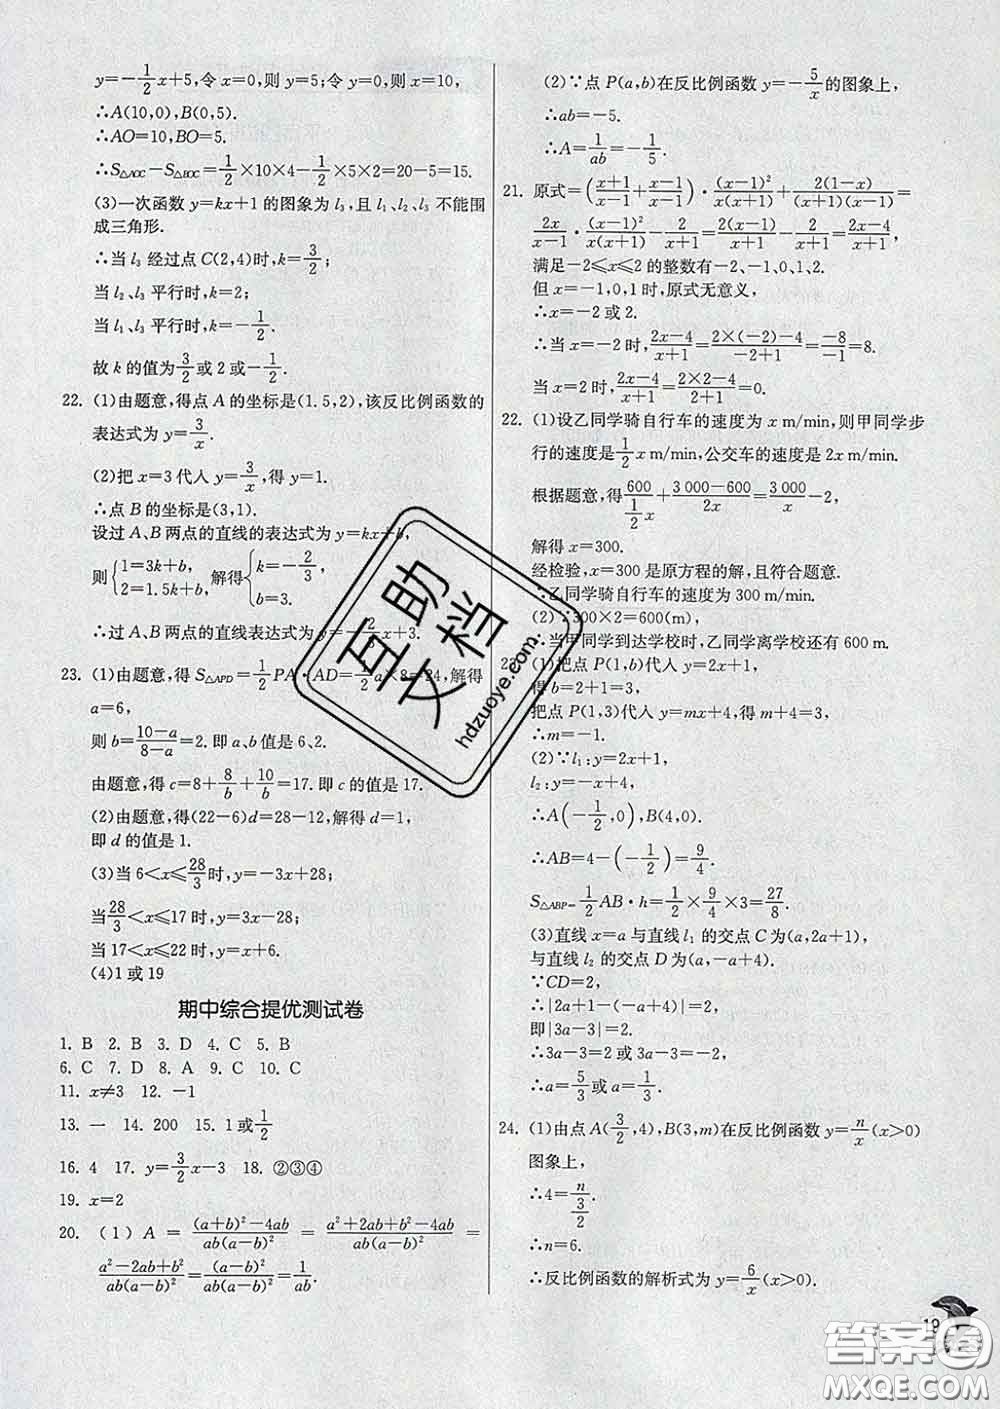 y=-1/2x+5,令 x=0,则 y=5;令 y=0,则 x=10,
∴A(10,0),B(0,5).
∴AO=10,BO=5.
∴S△AOC-S△BOC=1/2×10×4-1/2×5×2=20-5=15.
(3)一次函数 y=kx+1 的图象为 l₃,且 l₁、l₂、l₃ 不能围
成三角形.
∴当 l₃ 经过点 C(2,4)时,k=3/2;
当 l₂、l₃ 平行时,k=2;
当 l₁、l₃ 平行时,k=-1/2.
故 k 的值为3/2或 2 或-1/2.
22. (1)由题意,得点 A 的坐标是(1.5,2),该反比例函数的
表达式为 y=3/x.
(2)把 x=3 代入 y=3/x,得 y=1.
∴点 B 的坐标是(3,1).
设过 A、B 两点的直线的表达式为 y=kx+b,
则{1=3k+b, 2=1.5k+b, 解得{k=-2/3, b=3.
∴过 A、B 两点的直线表达式为 y=-2/3x+3.
23. (1)由题意,得 S△APD=1/2PA·AD=1/2a×8=24,解得
a=6,
则 b=(10-a)/(8-a)=2. 即 a、b 值是 6、2.
由题意,得 c=8+8/b+10/b=17. 即 c 的值是 17.
(2)由题意,得(22-6)d=28-12,解得 d=1,
即 d 的值是 1.
(3)当 6<x≤28/3时,y=-3x+28;
当28/3<x≤17 时,y=3x-28;
当 17<x≤22 时,y=x+6.
(4)1 或 19
期中综合提优测试卷
1. B 2. B 3. D 4. C 5. B
6. C 7. D 8. A 9. C 10. C
11. x≠3 12. -1
13. 一 14. 200 15. 1 或1/2
16. 4 17. y=3/2x-3 18. ②③④
19. x=2
20. (1) A = ((a+b)²-4ab)/(ab(a-b)²) = (a²+2ab+b²-4ab)/(ab(a-b)²) =
(a²-2ab+b²)/(ab(a-b)²)=(a-b)²/(ab(a-b)²)=1/ab.
(2)∵点 P(a,b)在反比例函数 y=-5/x的图象上,
∴ab=-5.
∴A=1/ab=-1/5.
21. 原式=((x+1)/(x-1)+x+1/(x-1))·(x-1)²/(x(x+1))+2(1-x)/((x+1)(x-1))=
2x/(x-1)·(x-1)²/(x(x+1))-2/(x+1)=2(x-1)/(x+1)-2/(x+1)=(2x-4)/(x+1),
满足-2≤x≤2 的整数有-2、-1、0、1、2.
但 x=-1、0、1 时,原式无意义,
∴x=-2 或 2.
∴当 x=-2 时,(2x-4)/(x+1)=(2×(-2)-4)/(-2+1)=-8/-1=8.
当 x=2 时,(2x-4)/(x+1)=(2×2-4)/(2+1)=0.
22. (1)设乙同学骑自行车的速度为 x m/min,则甲同学步
行的速度是1/2x m/min,公交车的速度是 2x m/min.
根据题意,得600/(1/2x)+(3 000-600)/2x=3 000/x-2,
解得 x=300.
经检验,x=300 是原方程的解,且符合题意.
∴乙同学骑自行车的速度为 300 m/min.
(2)∵300×2=600(m)
∴当甲同学到达学校时,乙同学离学校还有 600 m.
(1)把点 P(1,b)代入 y=2x+1,
得 b=2+1=3,
把点 P(1,3)代入 y=mx+4,得 m+4=3,
∴m=-1.
(2)∵l₁:y=2x+1,
l₂:y=-x+4,
∴A(-1/2,0),B(4,0).
∴AB=4-(-1/2)=9/4.
S△ABP=1/2AB·h=1/2×9/4×3=27/8.
(3)直线 x=a 与直线 l₁ 的交点 C 为(a,2a+1),
与直线 l₂ 的交点 D 为(a,-a+4).
∵CD=2,
∴|2a+1-(-a+4)|=2,
即|3a-3|=2.
∴3a-3=2 或 3a-3=-2,
∴a=5/3或 a=1/3.
24. (1)由点 A(3/2,4),B(3,m)在反比例函数 y=n/x(x>0)
图象上,
∴4=n/(3/2).
∴n=6.
∴反比例函数的解析式为 y=6/x(x>0).
19
互助
文档
hdzuoye.com
答案圈
MXQE.COM